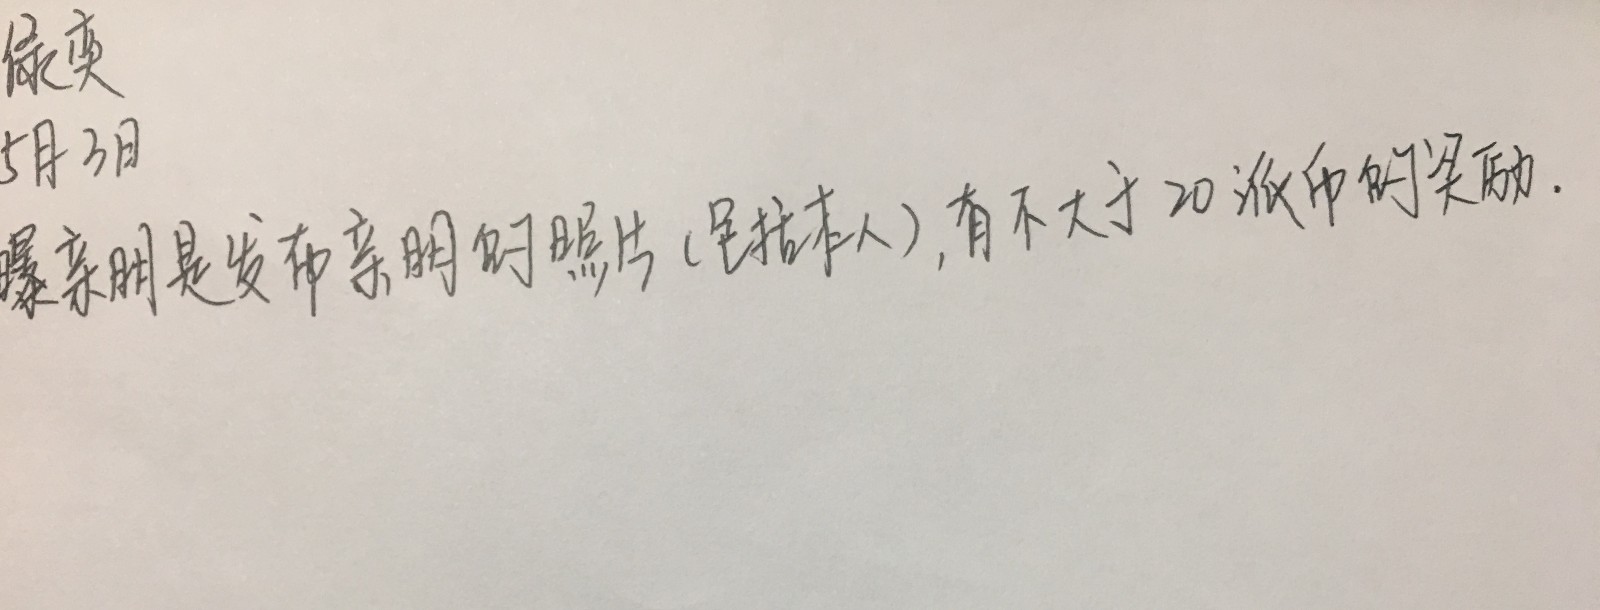 5月3日
曝亲朋是发布亲朋的照片(包括本人),有不大于20派币的奖励.